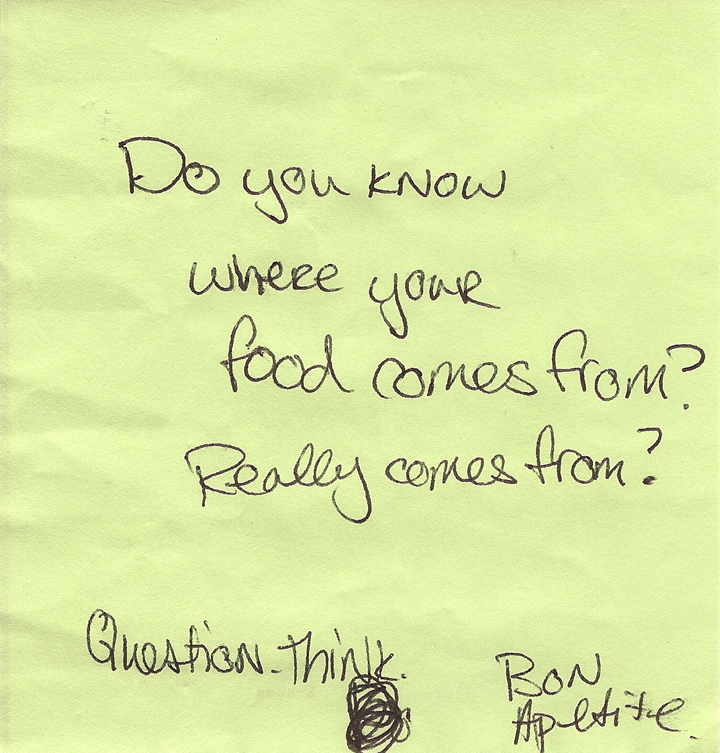 Do you know
where your
food comes from?
Really comes from?
Question. Think.
Bon
Apetite.